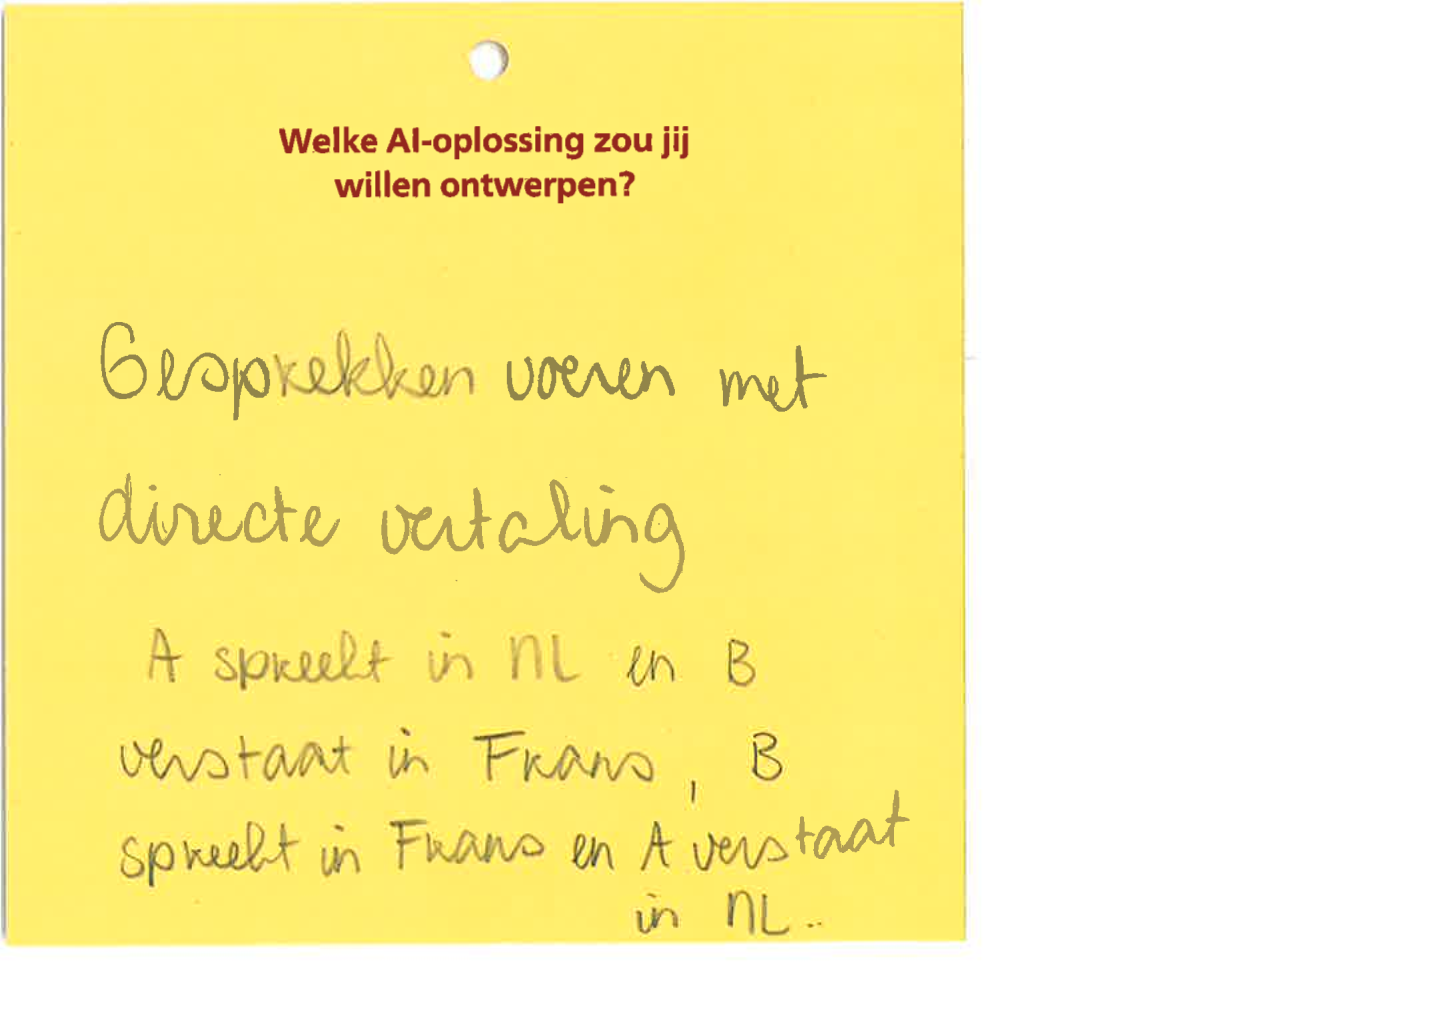 Welke AI-oplossing zou jij
willen ontwerpen?
Gesprekken voeren met
directe vertaling
A spreekt in NL en B
verstaat in Frans, B
spreekt in Frans en A verstaat
in NL..